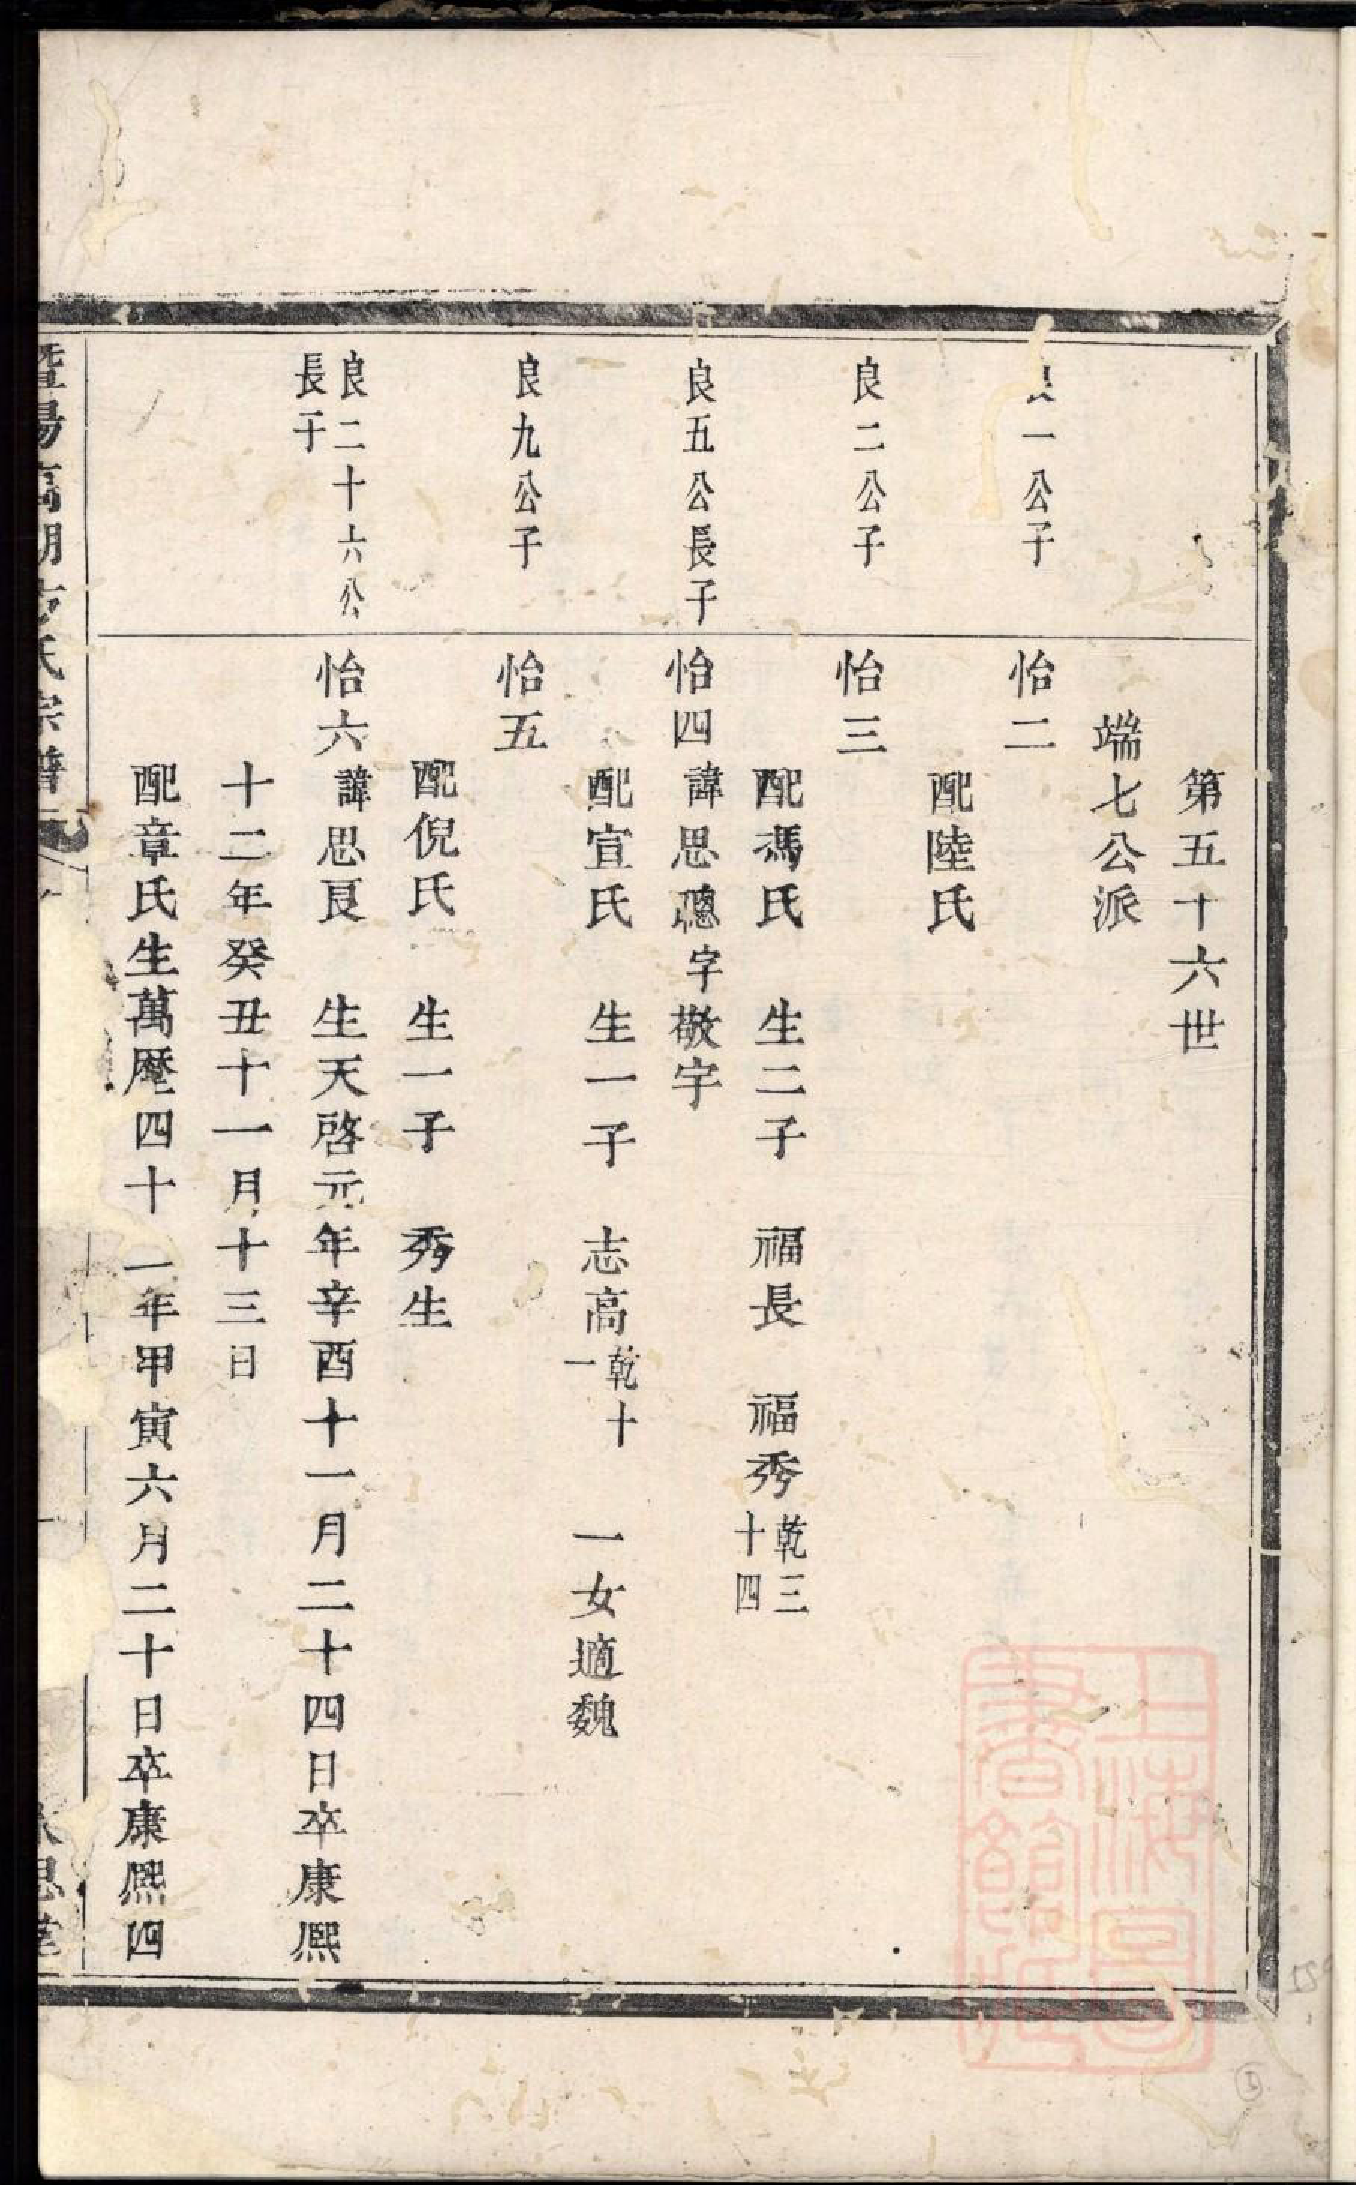 第五十六世
端七公派
一公子
怡二
配陸氏
良二公子
怡三
配馮氏 生二子 福長 福秀乾三
十四
良五公長子
怡四諱思聰字敬宇
配宣氏 生一子 志高乾十
一 一女適魏
良九公子
怡五
配倪氏 生一子 秀生
良二十六公
長子
怡六諱思良 生天啓元年辛酉十一月二十四日卒康熙
十二年癸丑十一月十三日
配章氏生萬曆四十一年甲寅六月二十日卒康熙四
暨陽高湖氏宗譜
思堂
上海圖
書館藏